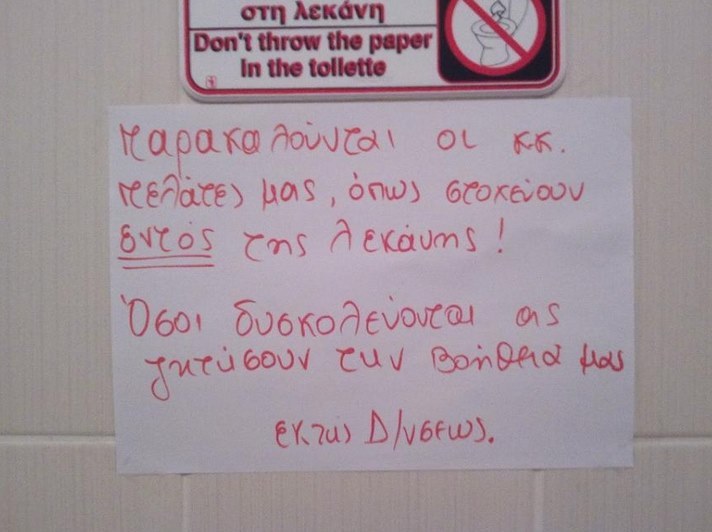 στη λεκάνη
Don't throw the paper
in the toilette
παρακαλούνται οι κκ.
πελάτες μας, όπως στοχεύουν
εντός της λεκάνης!
Όσοι δυσκολεύονται ας
ζητήσουν την βοήθειά μας
εκ της Δ/νσεως.